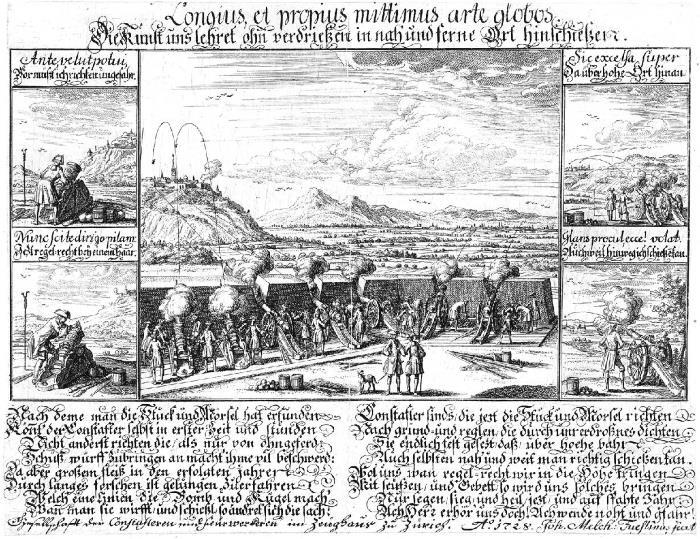 Longius et propius mittimus arte globos.
Die Kunst uns lehret ohn verdriessen in nah und ferne Ort hinschiessen.
Ante velut potui,
Vor must ich richten ungefahr.
Sic excelsa super
Da über hohe Ort hinan.
Nunc scite dirigo pilam
Jezt regel-recht bey einem Haar.
Glans procul ecce! volat.
Auch weil hinweg ich schiessen kan.
Nach deme man die Stuck und Morsel hat erfunden
Kont der Constafler selbst in erster Zeit und stunden
Nicht anderst richten die, als nur von ohngeferd
Schuss, wurff zubringen an macht ihme vil beschwerd:
Da aber grossem fleiss in den erfolgten jahren
Durch langes forschen ist gelungen, zuerfahren
Welch eine linien die Bomb und Kugel mach
Wan man sie wirfft und schiesst, so ändret sich die sach:
Constafler sinds, die jezt die Stuck und Morsel richten
Nach grund und reglen, die durch unverdrossnes dichten
Sie endlich fest gesezt, dass über hoche bahn
Auch selbsten nah und weit man richtig schiessen kan.
Gott uns, wan regel-recht wir in die Höhe bringen
Mit fleissen, und Gebett so wird uns solches bringen
Nur segen, sieg und heil, jezt und auf
Ach Herr erhör uns doch! Ach wende noht und gfahr!
Gesellschaft der Constafleren und Feuerwerkeren im Zeughaus zu Zürich. A.º 1728. Joh. Melch. Fuesslinus, fecit